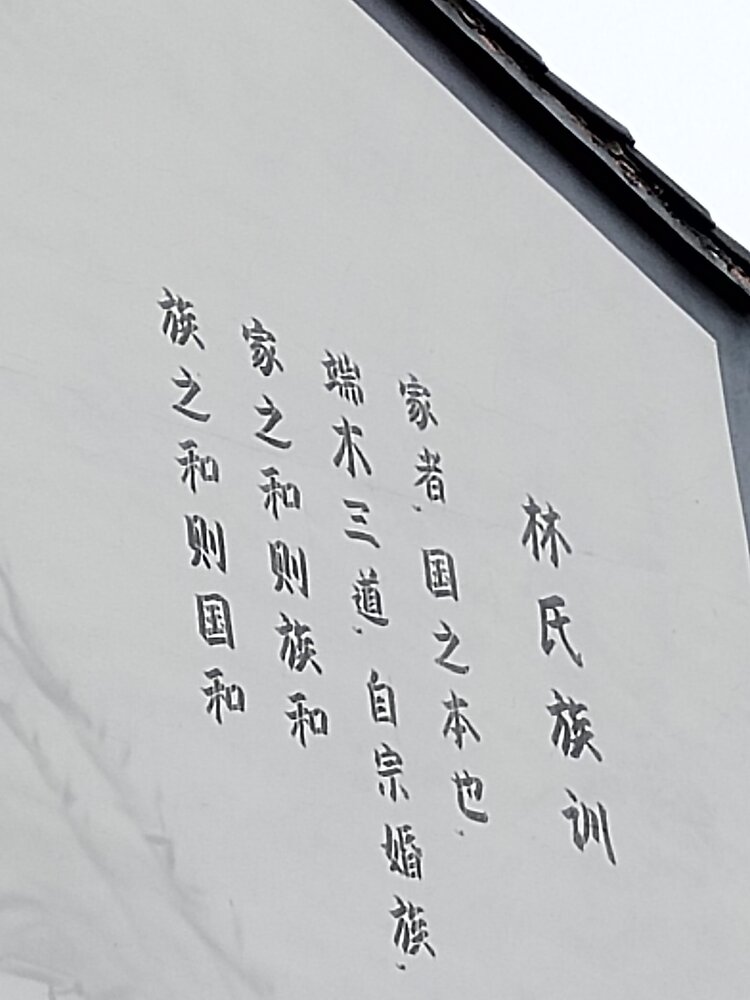 林氏族训
家者、国之本也、
端木三道、自宗婚族、
家之和则族和
族之和则国和